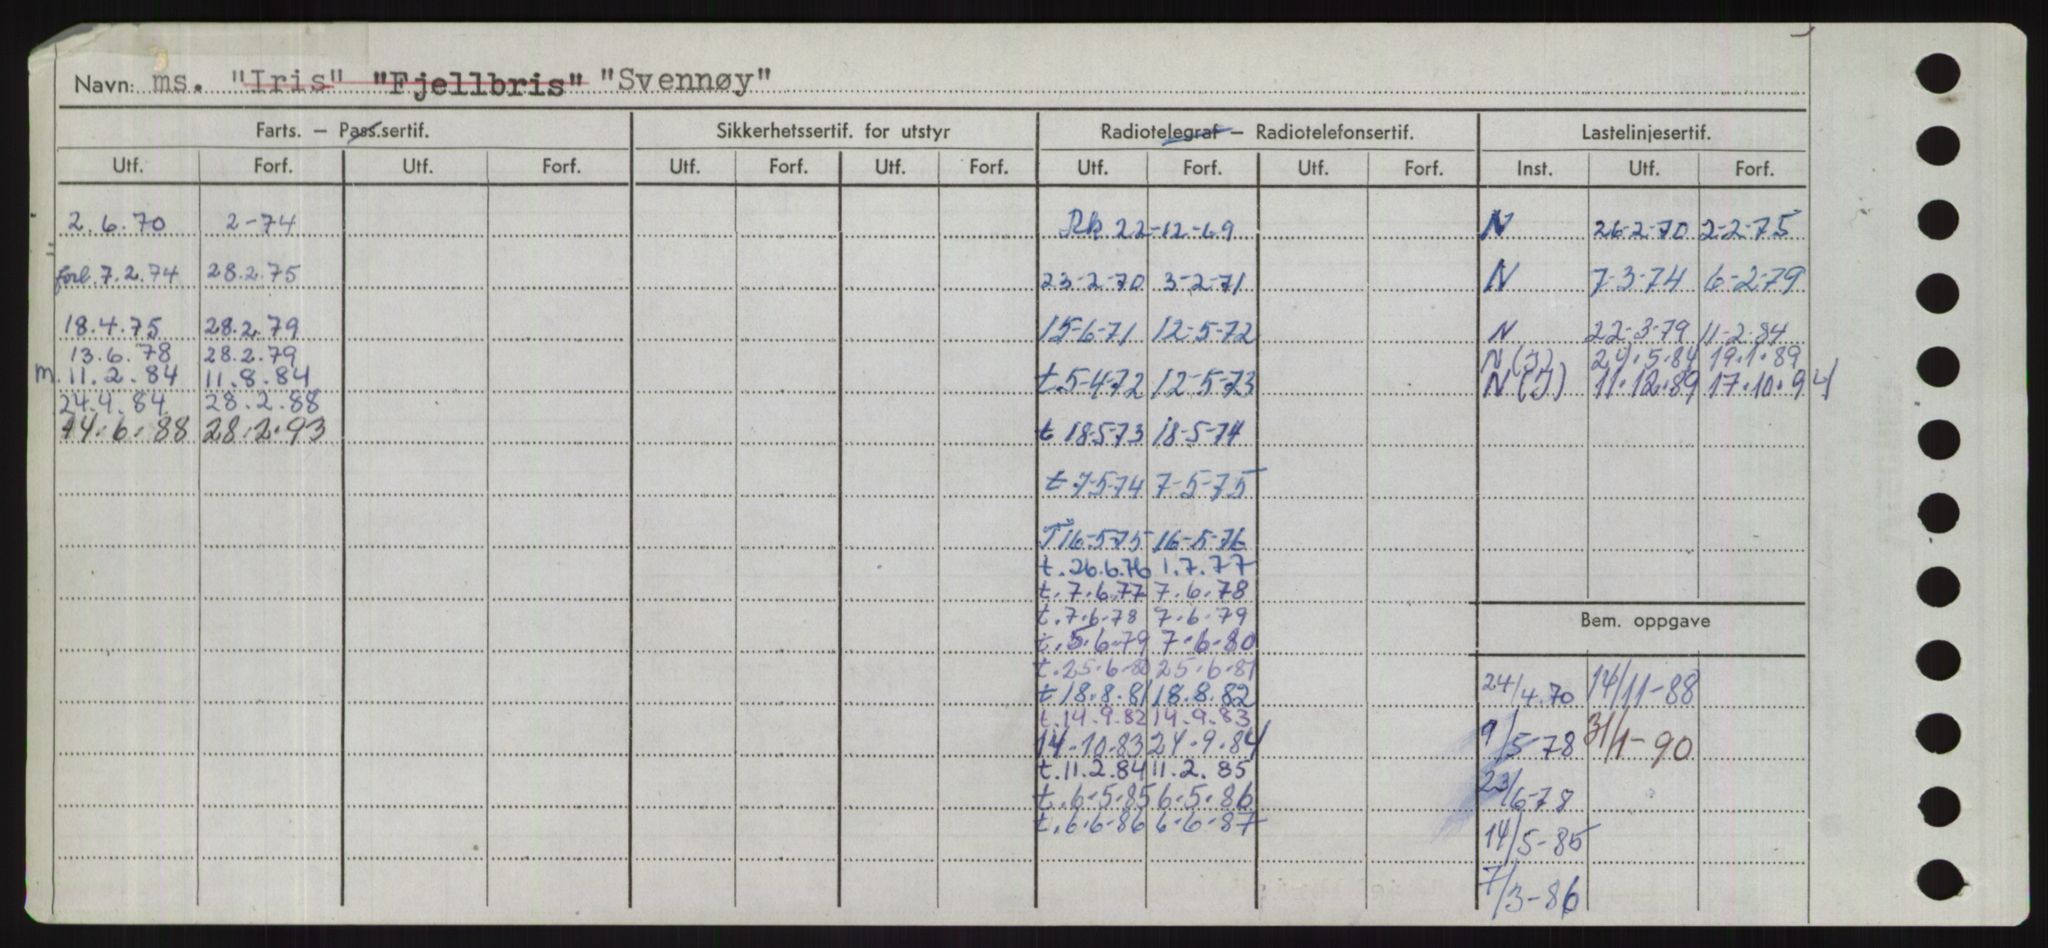 Navn: ms. "Iris" "Fjellbris" "Svennøy"
Farts. – Pass.sertif. Sikkerhetssertif. for utstyr Radiotelegraf – Radiotelefonsertif. Lastelinjesertif.
Utf. Forf. Utf. Forf. Utf. Forf. Utf. Forf. Utf. Forf. Utf. Forf. Inst. Utf. Forf.
2.6.70 2-74 Rk 22-12-69 N 26-2-70 2-2-75
forl. 7.2.74 28.2.75 23-2-70 3-2-71 N 7-3-74 6-2-79
18.4.75 28.2.79 15-6-71 12-5-72 N 22-3-79 11-2-84
13.6.78 28.2.79 N (J) 24.5.84 19.1.89
m. 11.2.84 11.8.84 t 5-4-72 12-5-73 N (J) 11.12.89 17.10.94
24.4.84 28.2.88
14.6.88 28.2.93 t 18-5-73 18-5-74
t 7-5-74 7-5-75
T 16-5-75 16-5-76
t. 26.6.76 1.7.77
t. 7.6.77 7.6.78
t. 7.6.78 7.6.79
Bem. oppgave
t. 5.6.79 7.6.80
t. 25.6.80 25.6.81
24/4.70 14/11-88
t 18.8.81 18.8.82
t. 14.9.82 14.9.83
14.10.83 24.9.84
9/5-78 31/1-90
t. 11.2.84 11.2.85
23/6-78
t. 6.5.85 6.5.86
t. 6.6.86 6.6.87
14/5-85
7/3-86